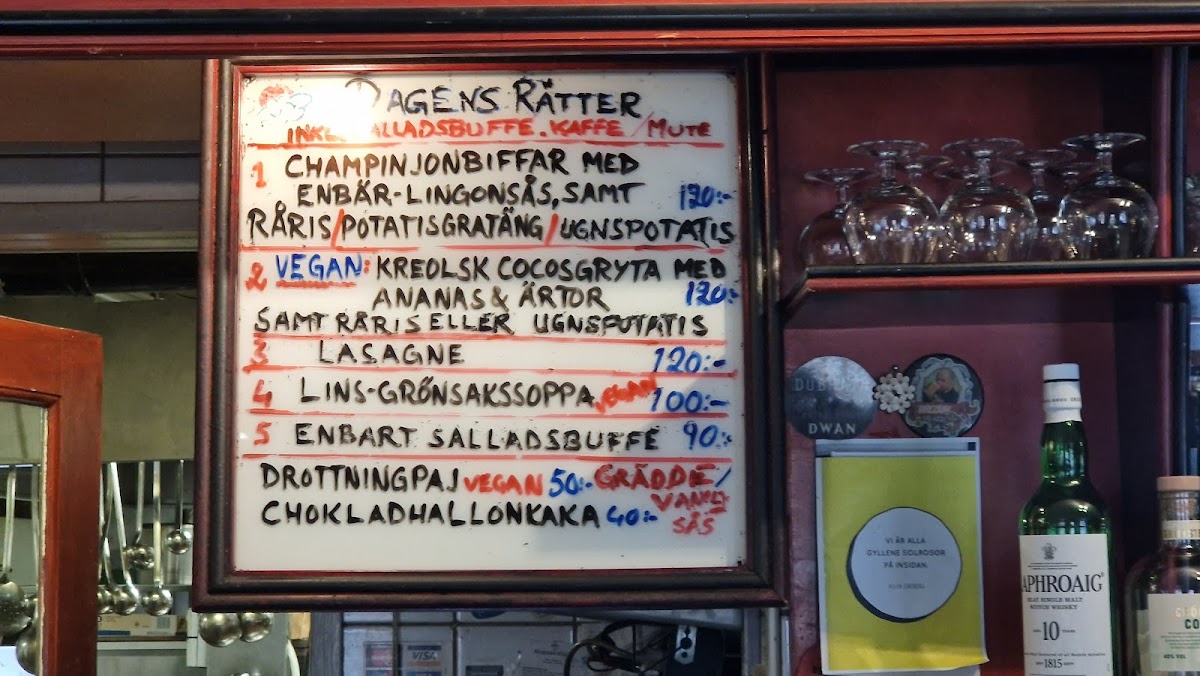 DAGENS RÄTTER
INKL. SALLADSBUFFE. KAFFE / MUTE
1 CHAMPINJONBIFFAR MED
ENBÄR-LINGONSÅS, SAMT 120:-
RÅRIS/POTATISGRATÄNG/UGNSPOTATIS
2 VEGAN: KREOLSK COCOSGRYTA MED
ANANAS & ÄRTOR 120:-
SAMT RÅRIS ELLER UGNSPOTATIS
3 LASAGNE 120:-
4 LINS-GRÖNSAKSSOPPA VEGAN 100:-
5 ENBART SALLADSBUFFÉ 90:-
DROTTNINGPAJ VEGAN 50:- GRÄDDE/
CHOKLADHALLONKAKA 40:- VANILJ
SÅS
DWAN
VI ÄR ALLA
GYLLENE SOLROSOR
PÅ INSIDAN.
APHROAIG
SINGLE MALT
SCOTCH WHISKY
10 YEARS
1815
CO
VISA